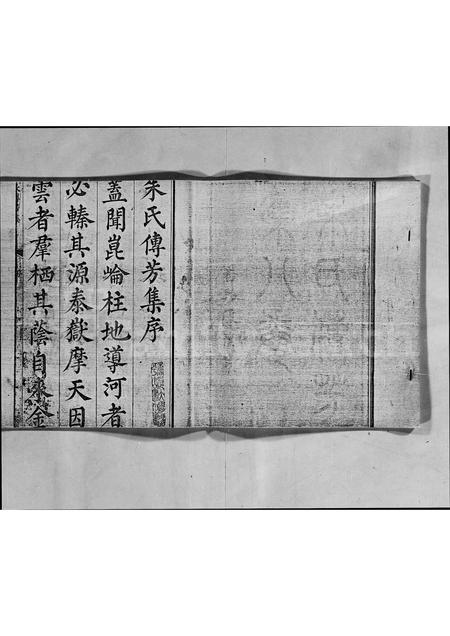 朱氏傳芳集序
蓋聞崑崙柱地導河者
必轃其源泰嶽摩天因
雲者羣栖其蔭自來金